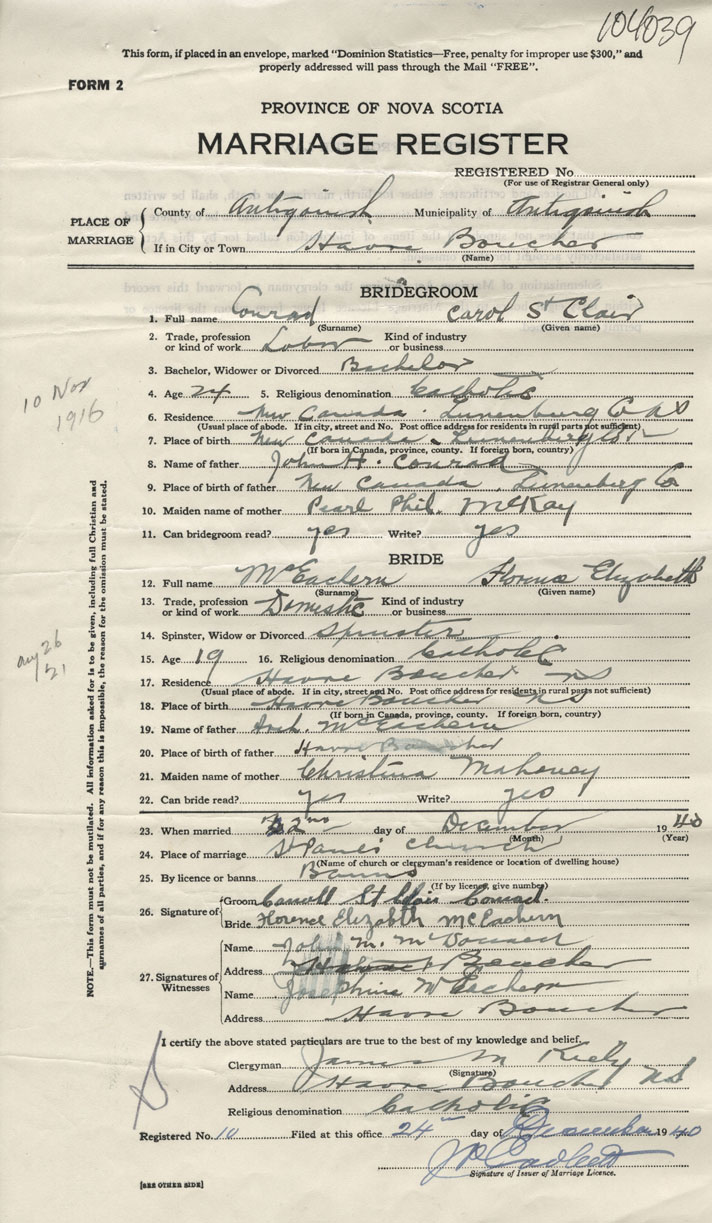 104039
This form, if placed in an envelope, marked "Dominion Statistics—Free, penalty for improper use $300," and
properly addressed will pass through the Mail "FREE".
FORM 2
PROVINCE OF NOVA SCOTIA
MARRIAGE REGISTER
REGISTERED No.
(For use of Registrar General only)
PLACE OF MARRIAGE
County of Antigonish Municipality of Antigonish
If in City or Town Havre Boucher
(Name)
BRIDEGROOM
1. Full name Conrad Carol St Clair
(Surname) (Given name)
2. Trade, profession or kind of work Labor Kind of industry or business
3. Bachelor, Widower or Divorced Bachelor
4. Age 24 5. Religious denomination Catholic
10 Nov
1916
6. Residence New Canada Lunenburg Co N S
(Usual place of abode. If in city, street and No. Post office address for residents in rural parts not sufficient)
7. Place of birth New Canada Lunenburg Co
(If born in Canada, province, county. If foreign born, country)
8. Name of father John H. Conrad
9. Place of birth of father New Canada Lunenburg Co
10. Maiden name of mother Pearl Phil. McKay
11. Can bridegroom read? yes Write? yes
BRIDE
12. Full name McEachern Florence Elizabeth
(Surname) (Given name)
13. Trade, profession or kind of work Domestic Kind of industry or business
14. Spinster, Widow or Divorced Spinster
15. Age 19 16. Religious denomination Catholic
26
/21
17. Residence Havre Boucher NS
(Usual place of abode. If in city, street and No. Post office address for residents in rural parts not sufficient)
18. Place of birth Havre Boucher NS
(If born in Canada, province, county. If foreign born, country)
19. Name of father Arch. McEachern
20. Place of birth of father Havre Boucher
21. Maiden name of mother Christina Mahoney
22. Can bride read? yes Write? yes
NOTE.—This form must not be mutilated. All information asked for is to be given, including full Christian and
surnames of all parties, and if for any reason this is impossible, the reason for the omission must be stated.
23. When married 22nd day of December 1940
(Month) (Year)
24. Place of marriage St Pauls Church
(Name of church or clergyman's residence or location of dwelling house)
25. By licence or banns Banns
(If by licence, give number)
26. Signature of
Groom Carroll St Clair Conrad.
Bride Florence Elizabth McEachern
27. Signatures of Witnesses
Name John M. McDonald
Address Havre Boucher
Name Josephine McEachern
Address Havre Boucher
I certify the above stated particulars are true to the best of my knowledge and belief.
Clergyman James M Kiely
(Signature)
Address Havre Boucher NS
Religious denomination Catholic
Registered No. 10 Filed at this office 24th day of December 1940
Signature of Issuer of Marriage Licence.
[SEE OTHER SIDE]